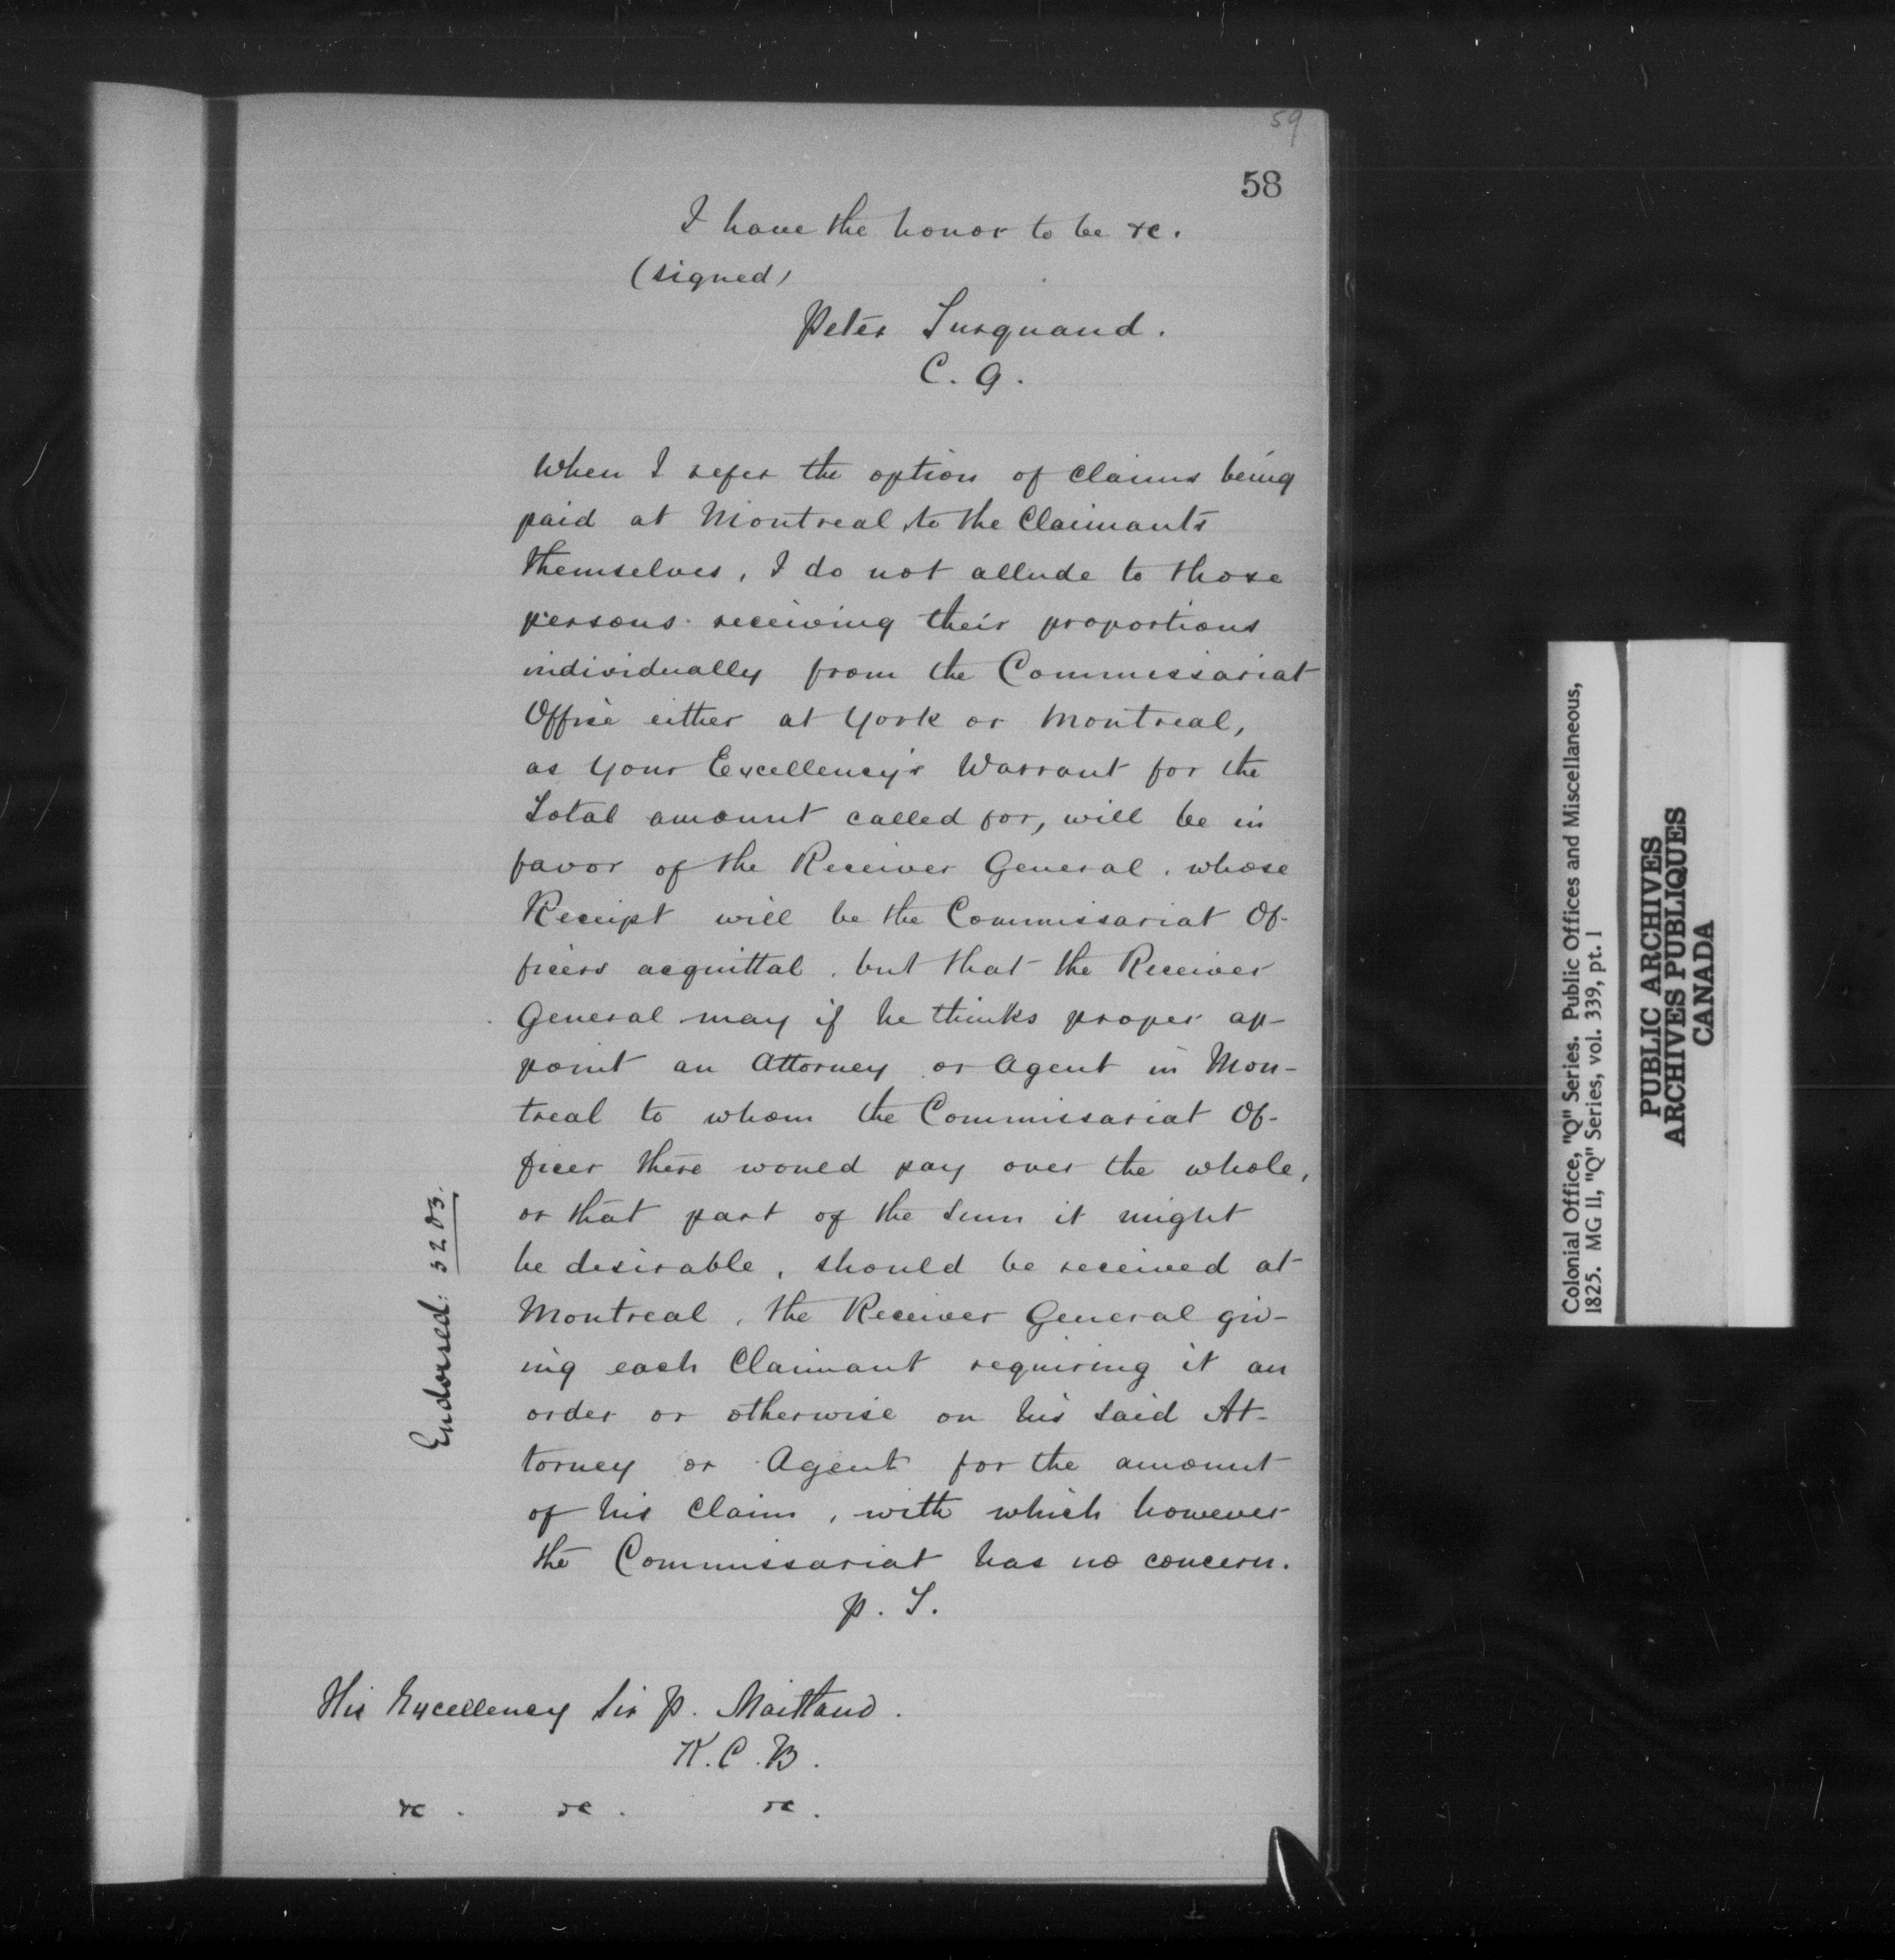 59
58
I have the honor to be &c.
(signed)
Peter Turquand.
C. G.
When I refer the option of Claims being
paid at Montreal, to the Claimants
themselves, I do not allude to those
persons receiving their proportions
individually from the Commissariat
Office either at York or Montreal,
as Your Excellency's Warrant for the
Total amount called for, will be in
favor of the Receiver General, whose
Receipt will be the Commissariat Of-
ficers acquittal, but that the Receiver
General may if he thinks proper ap-
point an Attorney or Agent in Mon-
treal to whom the Commissariat Of-
ficer there would pay over the whole,
or that part of the Sum it might
be desirable, should be received at
Montreal, the Receiver General giv-
ing each Claimant requiring it an
order or otherwise on his said At-
torney or Agent for the amount
of his Claim, with which however
the Commissariat has no concern.
P. T.
Endorsed: 3203.
His Excellency Sir P. Maitland.
K. C. B.
&c. &c. &c.
Colonial Office, "Q" Series. Public Offices and Miscellaneous,
1825. MG 11, "Q" Series, vol. 339, pt. 1
PUBLIC ARCHIVES
ARCHIVES PUBLIQUES
CANADA